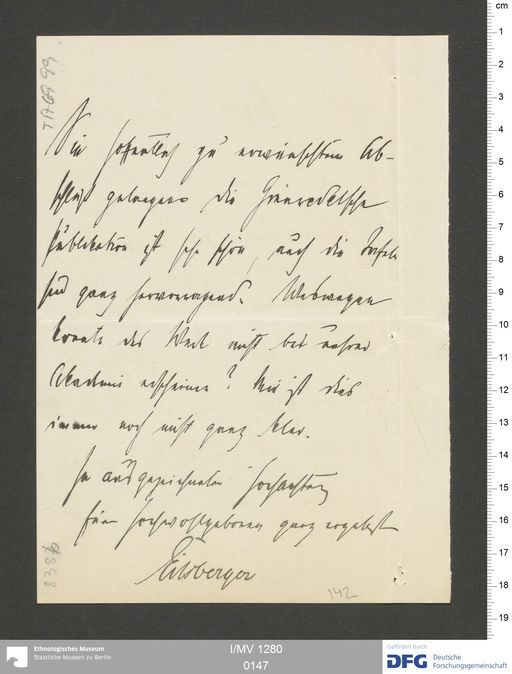 TAGA 99
Sie hoffentlich zu erwünschtem Ab-
schluß gelangen. die Grünwedelsche
Publikation ist sehr schön, auch die Tafeln
sind ganz hervorragend. Weswegen
konnte das Werk nicht bei unserer
Akademie erscheinen? Mir ist dies
immer noch nicht ganz klar.
In ausgezeichneter Hochachtung
Euer Hochwohlgeboren ganz ergebenst
142
cm
1
2
3
4
5
6
7
8
9
10
11
12
13
14
15
16
17
18
19
Ethnologisches Museum
Staatliche Museen zu Berlin
I/MV 1280
0147
Gefördert durch
DFG Deutsche
Forschungsgemeinschaft